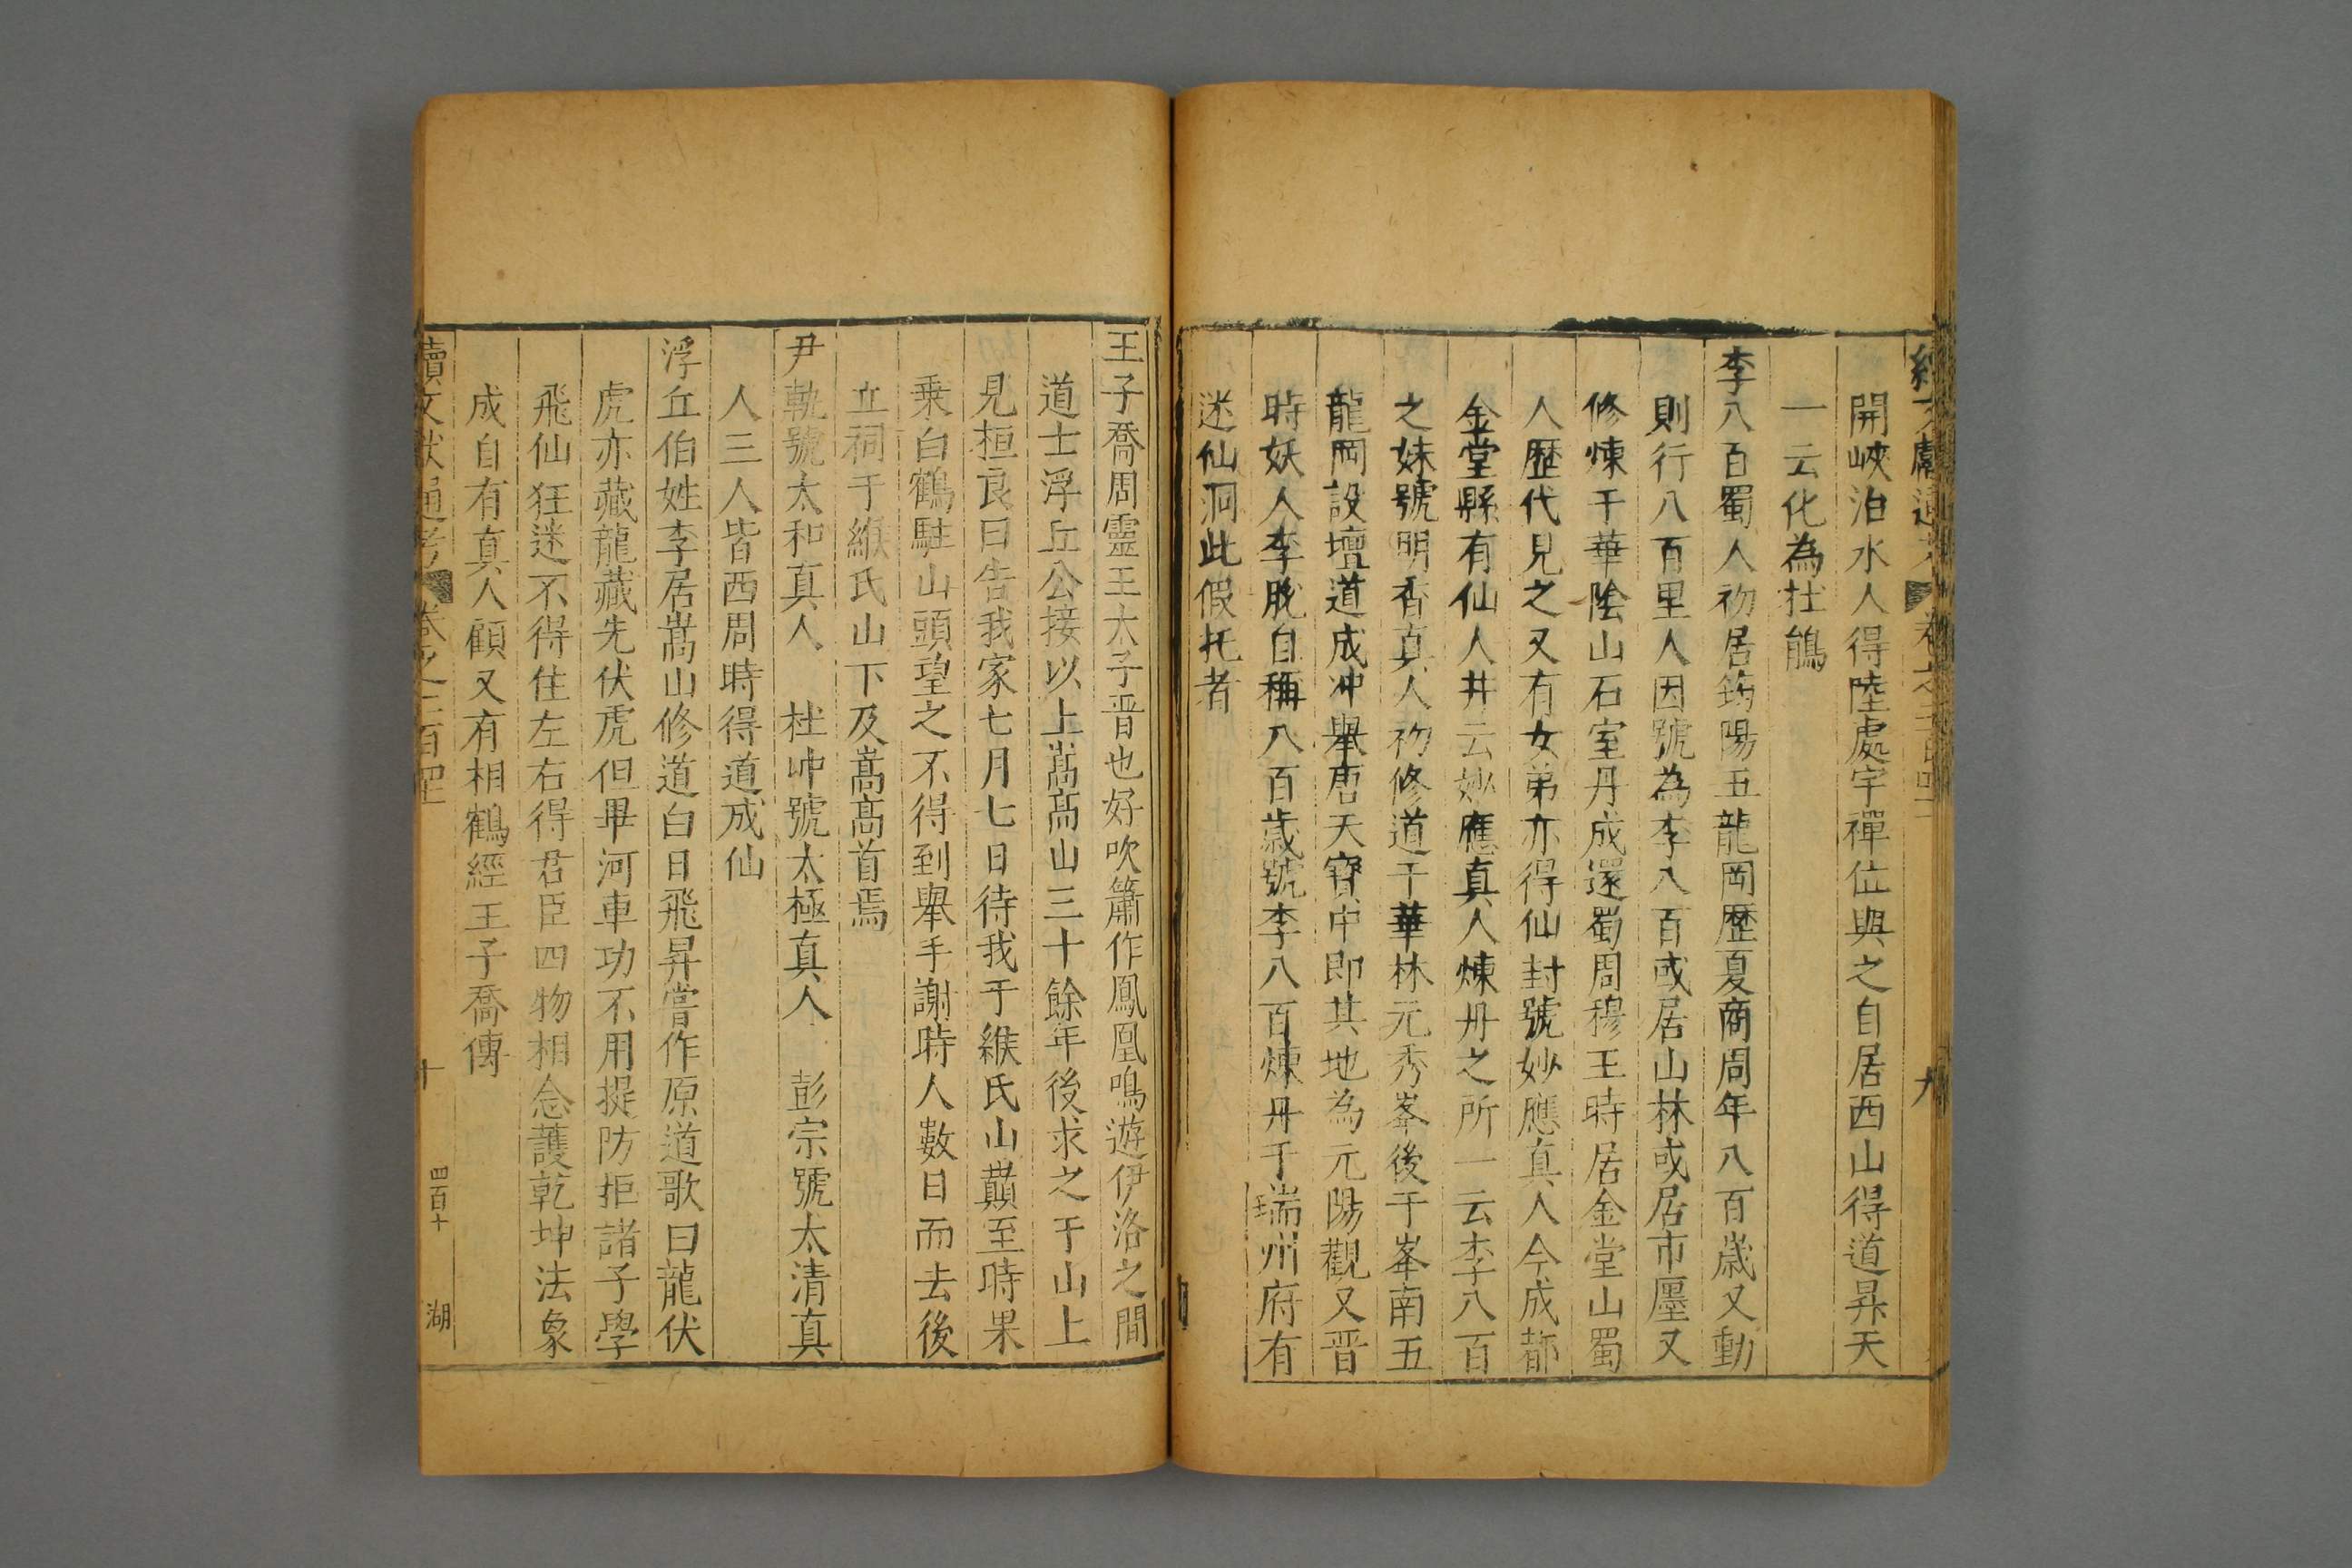 續文獻通考 卷之二百四十一 九
開峽治水人得陸處宇禪位與之自居西山得道昇天
一云化為杜鵑
李八百蜀人初居筠陽五龍岡歷夏商周年八百歲又動
則行八百里人因號為李八百或居山林或居市廛又
修煉于華陰山石室丹成還蜀周穆王時居金堂山蜀
人歷代見之又有女弟亦得仙封號妙應真人今成都
金堂縣有仙人井云妙應真人煉丹之所一云李八百
之妹號明香真人初修道于華林元秀峯後于峯南五
龍岡設壇道成冲舉唐天寶中即其地為元陽觀又晋
時妖人李脫自稱八百歲號李八百煉丹于瑞州府有
迷仙洞此假托者
王子喬周靈王太子晋也好吹簫作鳳凰鳴遊伊洛之間
道士浮丘公接以上嵩高山三十餘年後求之于山上
見桓良曰告我家七月七日待我于緱氏山巔至時果
乘白鶴駐山頭望之不得到舉手謝時人數日而去後
立祠于緱氏山下及嵩高首焉
尹軌號太和真人 杜冲號太極真人 彭宗號太清真
人三人皆西周時得道成仙
浮丘伯姓李居嵩山修道白日飛昇嘗作原道歌曰龍伏
虎亦藏龍藏先伏虎但畢河車功不用提防拒諸子學
飛仙狂迷不得住左右得君臣四物相念護乾坤法象
成自有真人顧又有相鶴經王子喬傳
續文獻通考 卷之二百四十一 十 四百十 湖